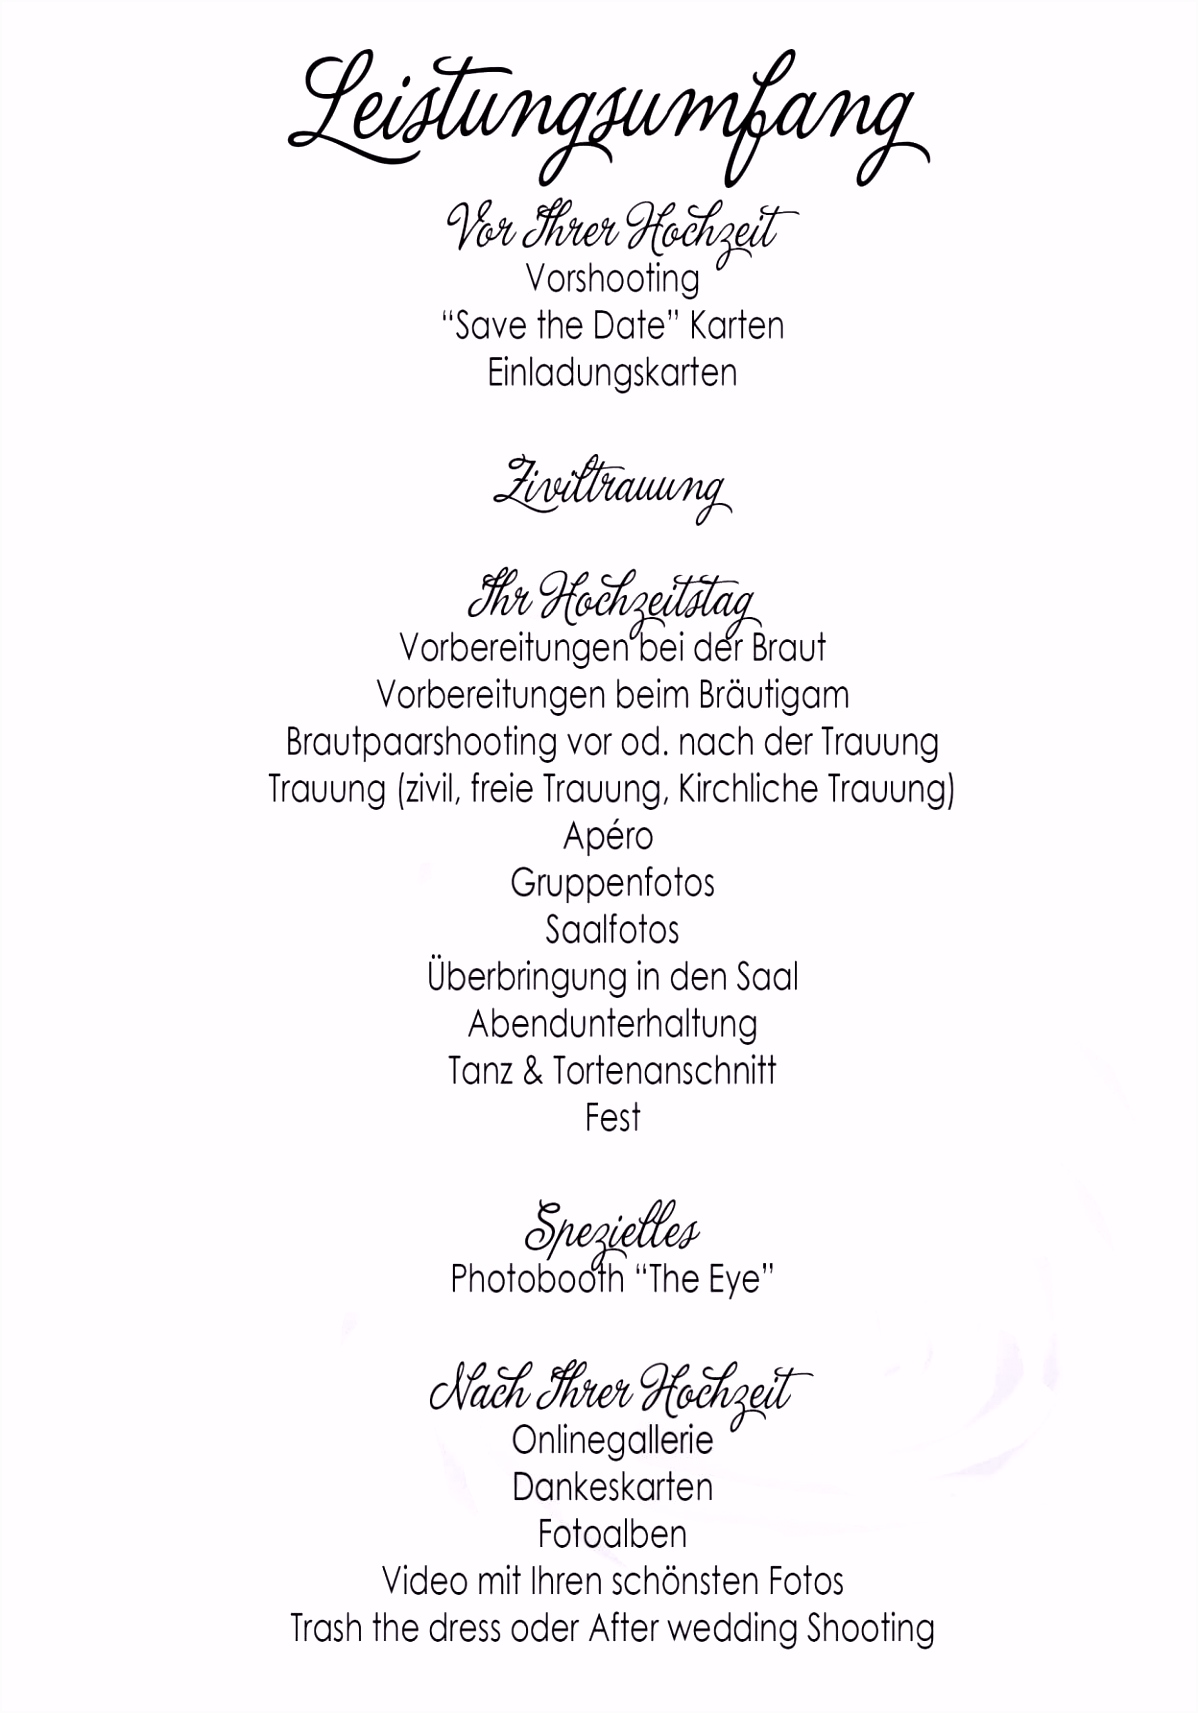 Leistungsumfang
Vor Ihrer Hochzeit
Vorshooting
“Save the Date” Karten
Einladungskarten
Ziviltrauung
Ihr Hochzeitstag
Vorbereitungen bei der Braut
Vorbereitungen beim Bräutigam
Brautpaarshooting vor od. nach der Trauung
Trauung (zivil, freie Trauung, Kirchliche Trauung)
Apéro
Gruppenfotos
Saalfotos
Überbringung in den Saal
Abendunterhaltung
Tanz & Tortenanschnitt
Fest
Spezielles
Photobooth “The Eye”
Nach Ihrer Hochzeit
Onlinegallerie
Dankeskarten
Fotoalben
Video mit Ihren schönsten Fotos
Trash the dress oder After wedding Shooting